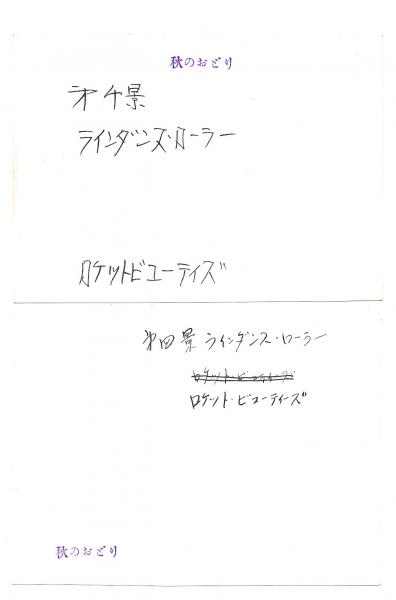 秋のおどり
第4景
ラインダンス・ローラー
ロケットビューティズ
第四景 ラインダンス・ローラー
ロケット・ビューティーズ
ロケット・ビューティーズ
秋のおどり